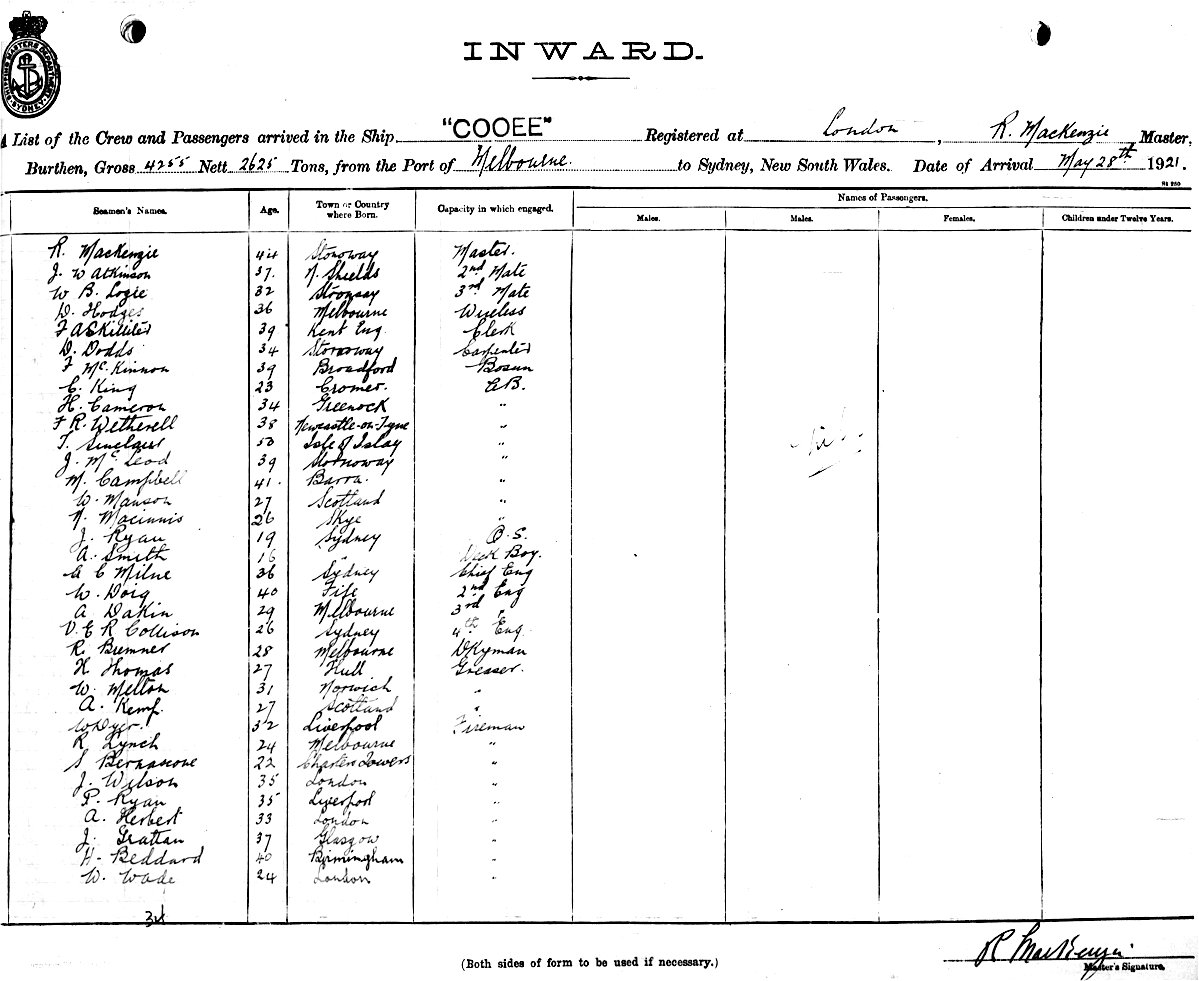 SHIPPING MASTERS DEPARTMENT SYDNEY
INWARD.
A List of the Crew and Passengers arrived in the Ship "COOEE" Registered at London, R. MacKenzie Master,
Burthen, Gross 4255 Nett 2625 Tons, from the Port of Melbourne. to Sydney, New South Wales. Date of Arrival May 28th 1921.
Seamen's Names. Age. Town or Country where Born. Capacity in which engaged. Names of Passengers.
Males. Males. Females. Children under Twelve Years.
R. MacKenzie 44 Stonoway Master.
J. W Atkinson 37. N. Shields 2nd Mate
W B. Logie 32 Stronsay 3rd Mate
D. Hodges 36 Melbourne Wireless
F A Skilliter 39 Kent Eng. Clerk
D. Dodds 34 Stornoway Carpenter
F McKinnon 39 Broadford Bosun
C. King 23 Cromer. A.B.
H. Cameron 34 Greenock "
F R. Wetherell 38 Newcastle-on-Tyne "
T. Sinclair 50 Isle of Islay "
J. McLeod 39 Stornoway "
M. Campbell 41. Barra. "
W. Manson 27 Scotland "
N. Macinnis 26 Skye "
J. Ryan 19 Sydney O.S.
A. Smith 16 " Deck Boy.
A C Milne 36 Sydney Chief Eng
W. Doig 40 Fife 2nd Eng
A. Dakin 29 Melbourne 3rd "
V. E R Collison 26 Sydney 4th Eng.
R. Bremner 28 Melbourne Dkyman
H Thomas 27 Hull Greaser.
W. Melton 31 Norwich "
A. Kemp. 27 Scotland "
W Dyer. 32 Liverpool Fireman
R Lynch 24 Melbourne "
S Bernascone 22 Charters Towers "
J. Wilson 35 London "
P. Ryan 35 Liverpool "
A. Herbert 33 London "
J. Grattan 37 Glasgow "
H. Beddard 40 Birmingham "
W. Wade 24 London "
Nil
34
R MacKenzie
Master's Signature.
(Both sides of form to be used if necessary.)